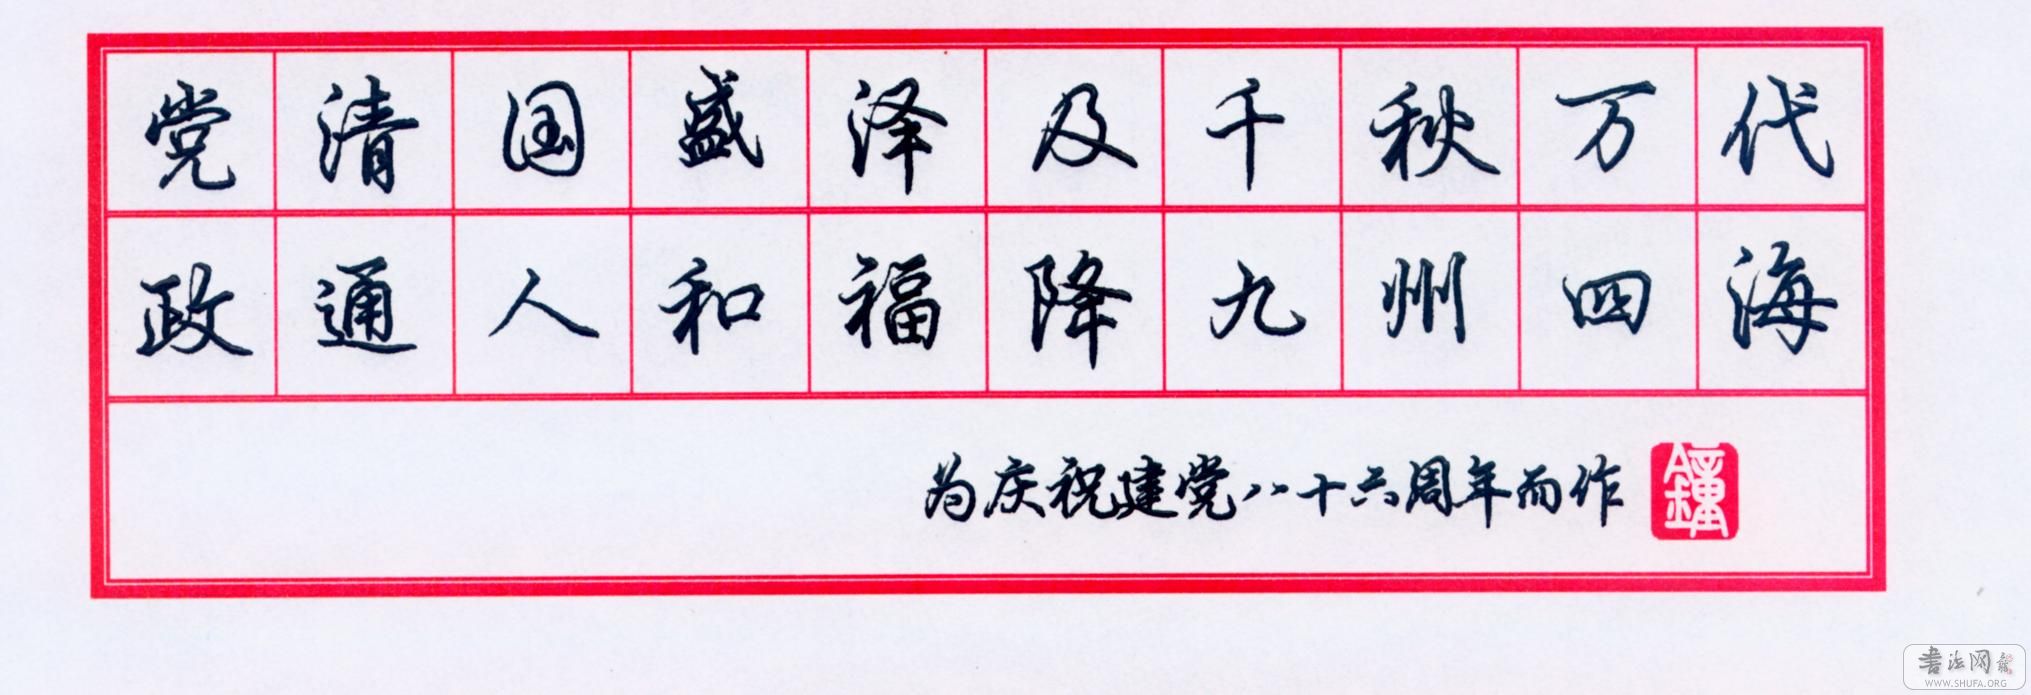 党清国盛泽及千秋万代
政通人和福降九州四海
为庆祝建党八十六周年而作
鐘
书法网
WWW.SHUFA.ORG